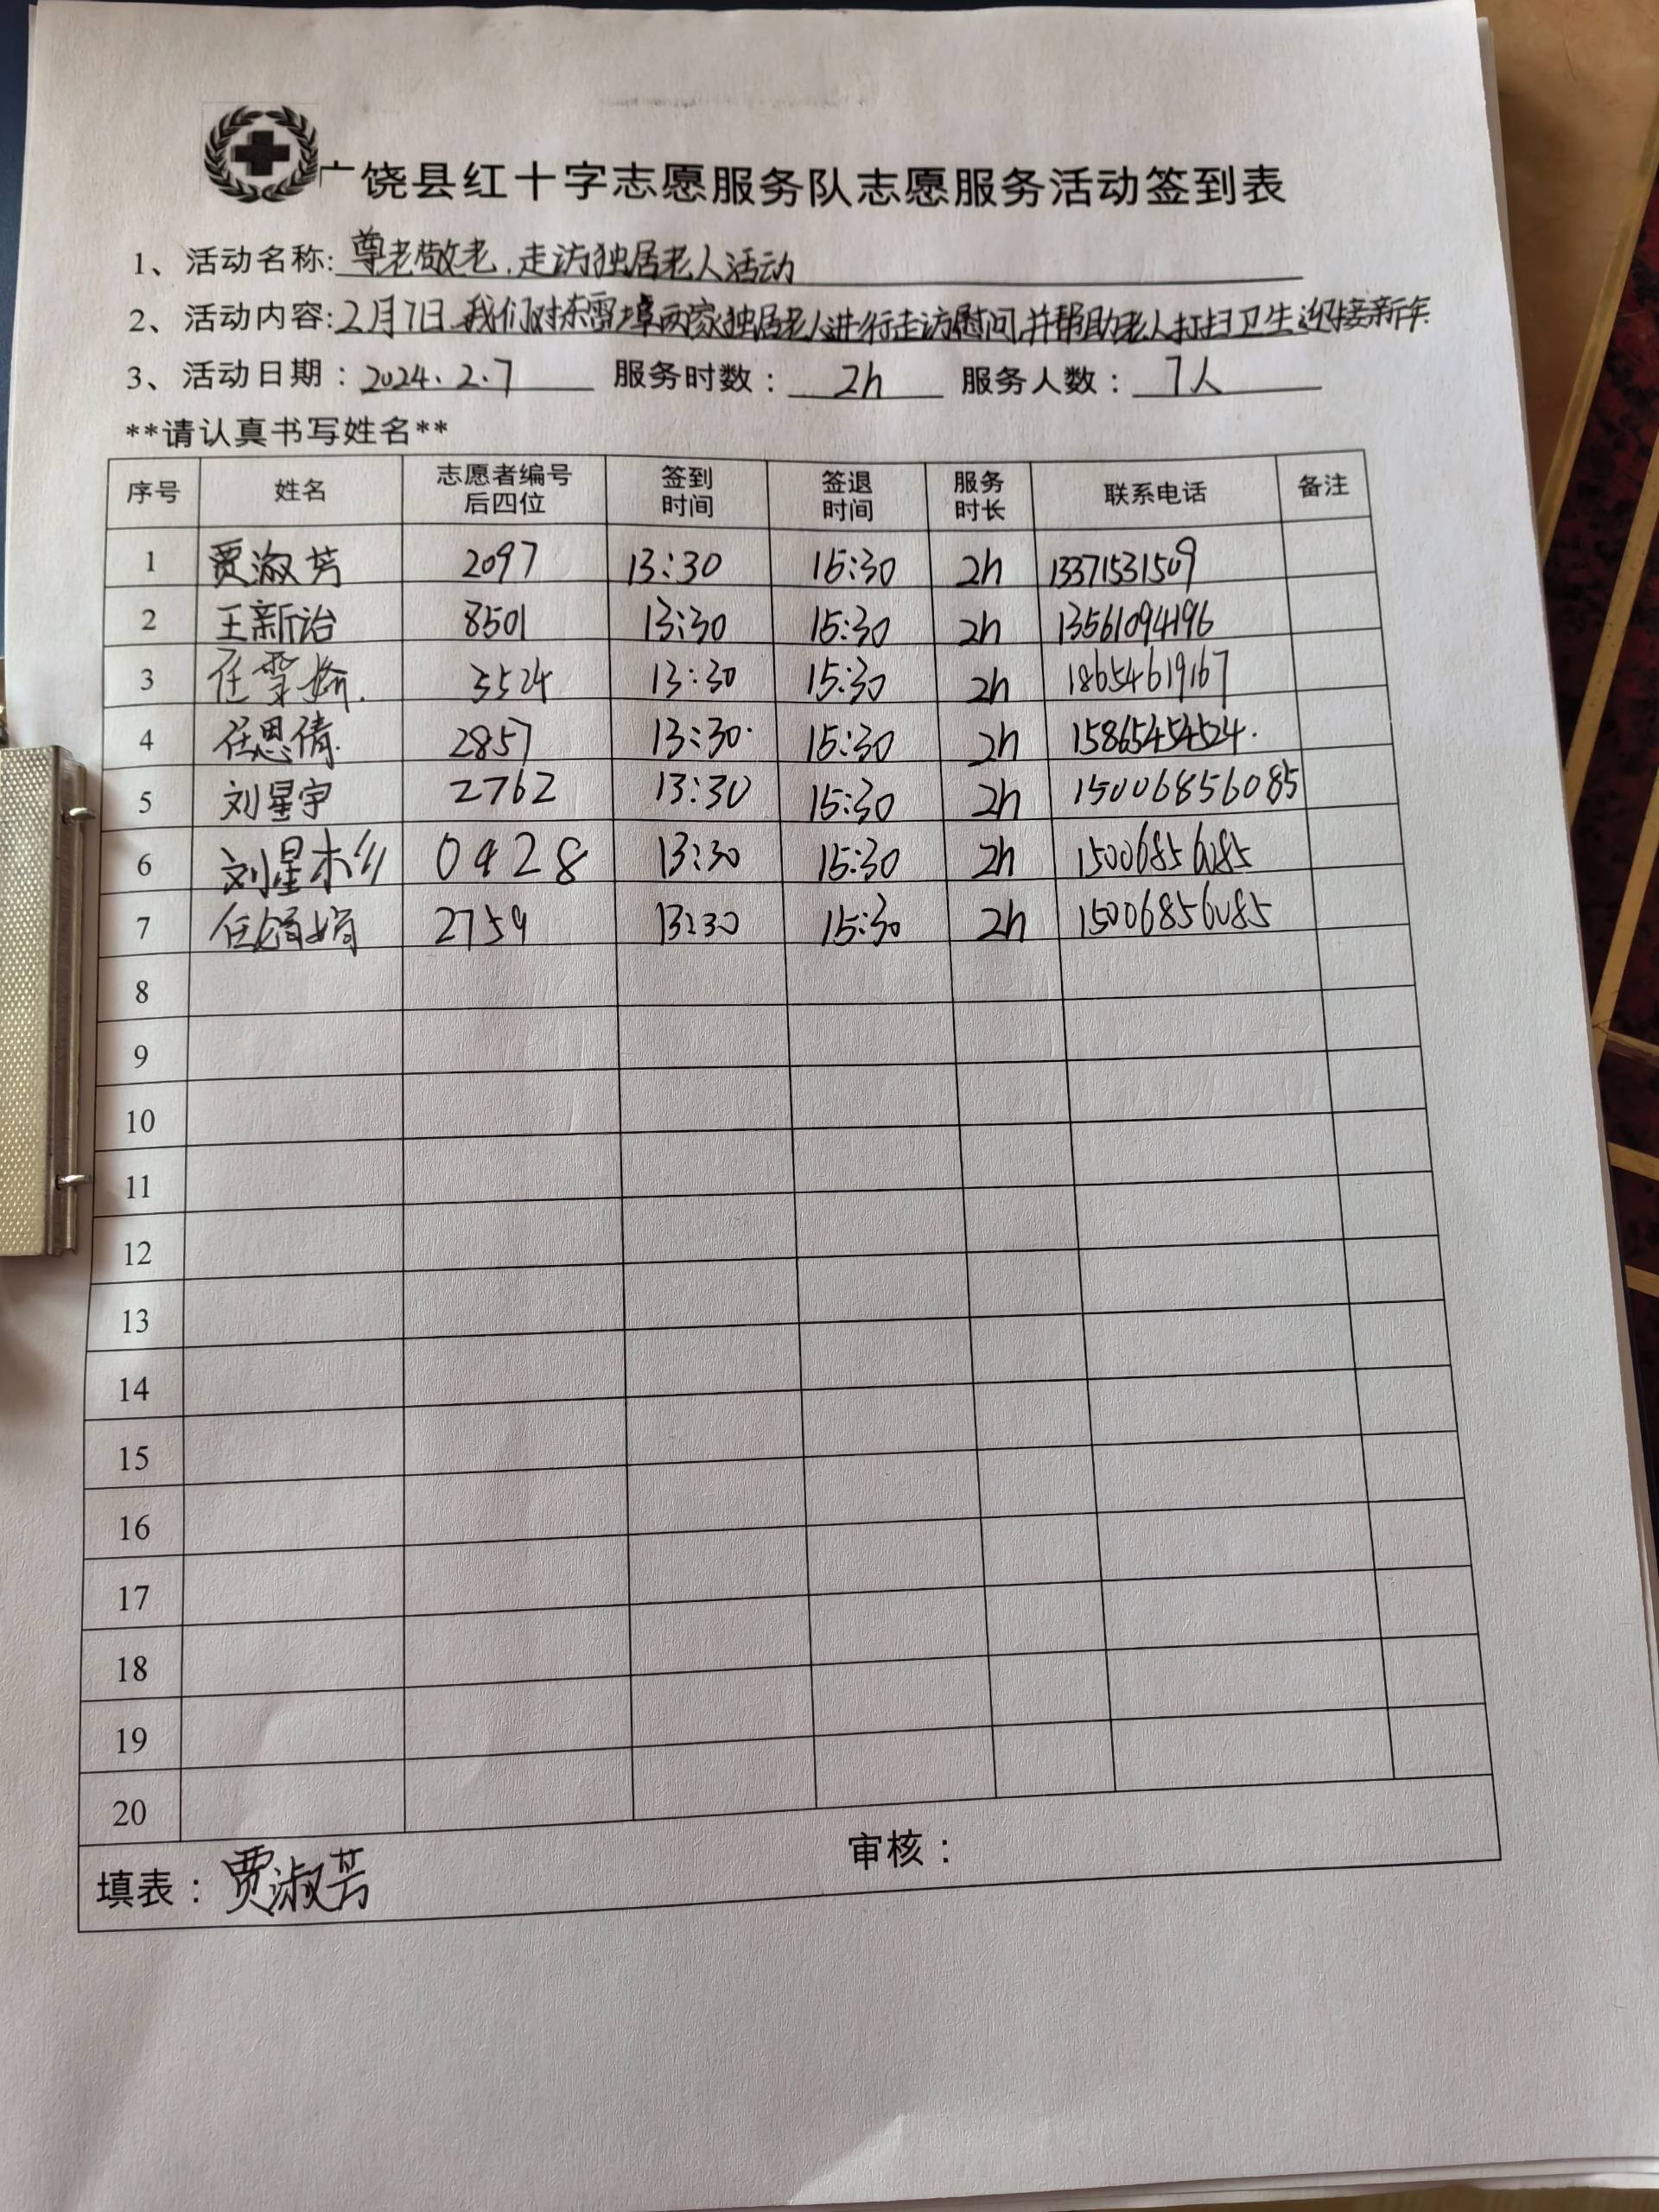 广饶县红十字志愿服务队志愿服务活动签到表
1、活动名称:尊老敬老,走访独居老人活动
2、活动内容:2月7日,我们对东雷埠两家独居老人进行走访慰问,并帮助老人打扫卫生迎接新年.
3、活动日期：2024.2.7 服务时数：2h 服务人数：7人
**请认真书写姓名**
序号 姓名 志愿者编号后四位 签到时间 签退时间 服务时长 联系电话 备注
1 贾淑芳 2097 13:30 15:30 2h 13371531509
2 王新治 8501 13:30 15:30 2h 13561094196
3 任雯 3524 13:30 15:30 2h 18654619167
4 任思倩 2857 13:30 15:30 2h 15865454524.
5 刘星宇 2762 13:30 15:30 2h 15006856085
6 刘星杉 0428 13:30 15:30 2h 15006856085
7 任娟娟 2759 13:30 15:30 2h 15006856085
8
9
10
11
12
13
14
15
16
17
18
19
20
填表：贾淑芳 审核：